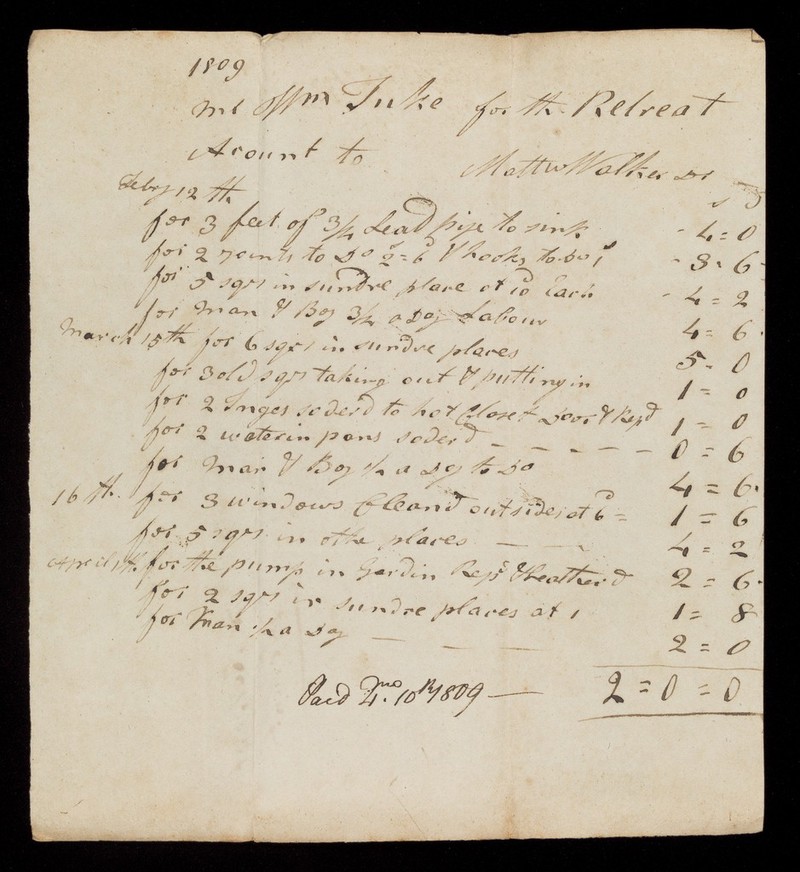 1809
Mr Wm Tuke for the Retreat
Acount to Mattw Walker Dr
s D
Febry 12 th
for 3 feet of 3/4 Lead pipe to sink - 4=0
for 2 joints to Do 2=6 & hooks to Do 1 - 3=6
for 5 sqrs in sundre place at 10 Each - 4=2
for Man & Boy 3/4 a Day Labour 4=6
March 15th for 6 sqrs in sundre places 5=0
for 3 old sqrs taking out & putting in 1=0
for 2 Inges soderd to hot Closet Door & Repd 1=0
for 2 waterin pans soderd - - - - - 0=6
for Man & Boy 1/2 a Day to Do 4=6
16 th for 3 windows Cleand outsides at 6d = 1=6
for 5 sqrs in othe places - - 4=2
April 1th for the pump in Gardin Repd & Leatherd 2=6
for 2 sqrs in sundre places at 1=8
for Man 1/2 a Day - - - 2=0
Paid 4mo. 10th 1809 — 2=0=0